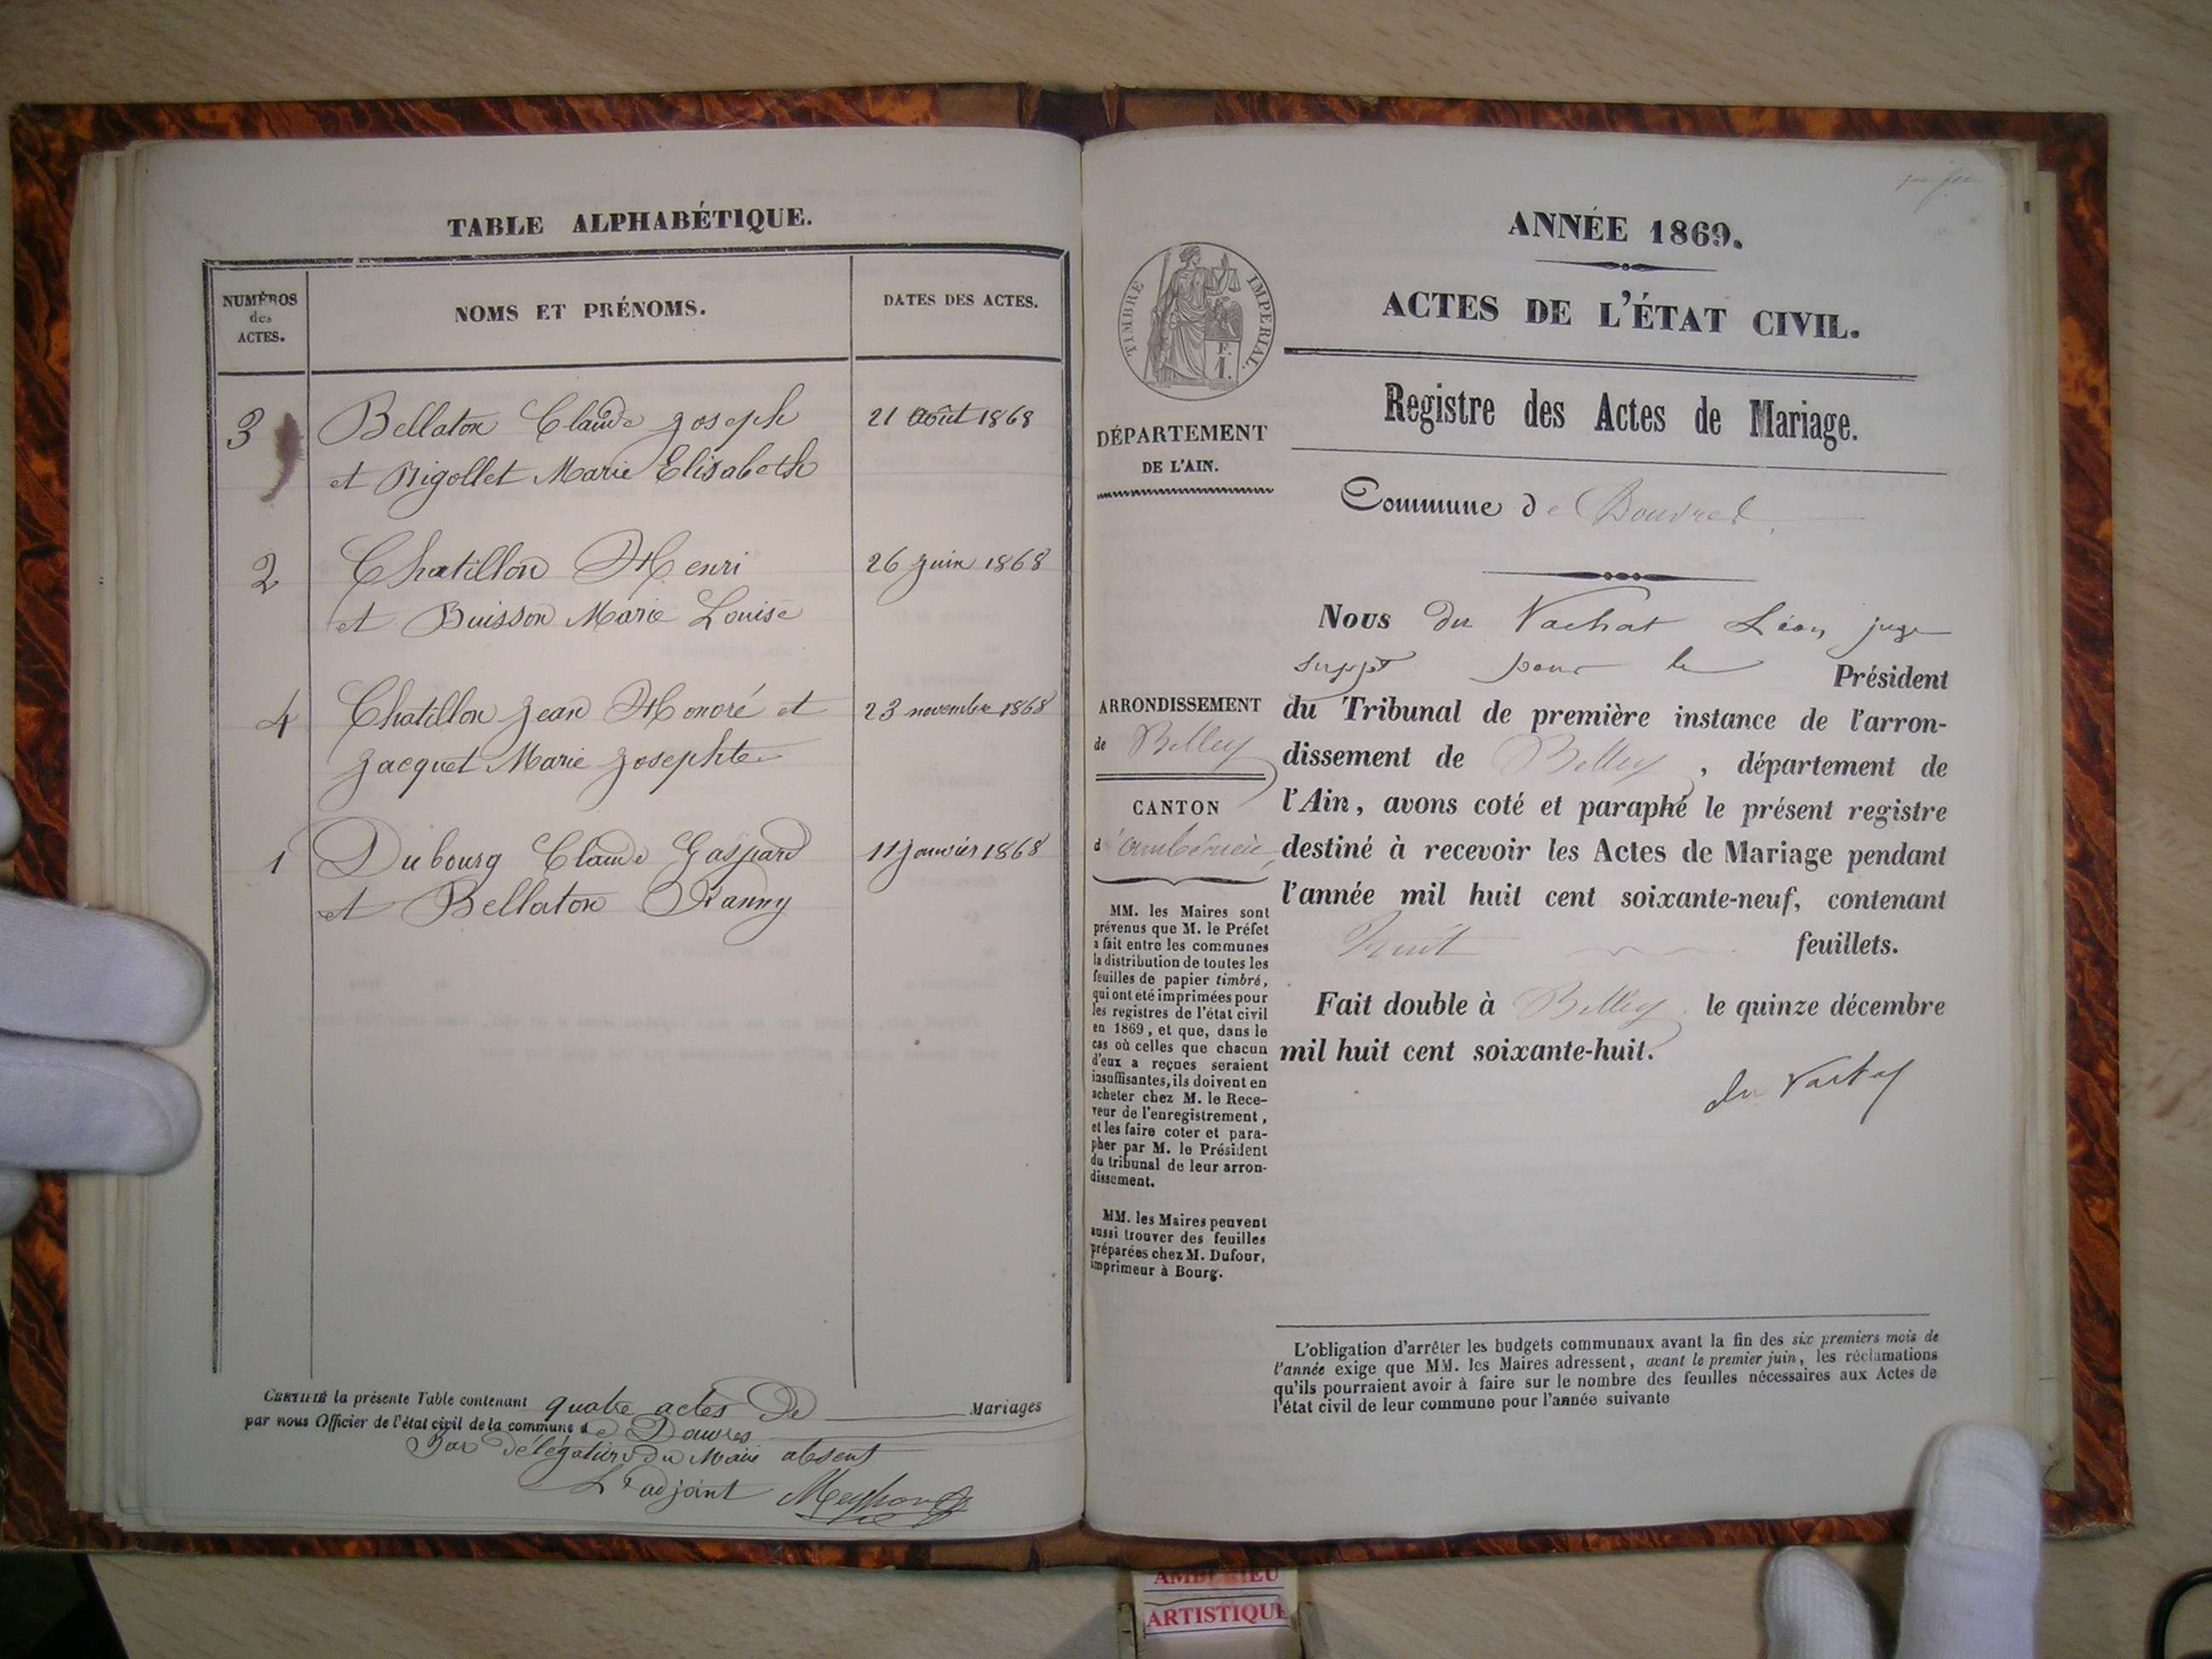 TABLE ALPHABÉTIQUE.
NUMÉROS
des
ACTES.
NOMS ET PRÉNOMS.
DATES DES ACTES.
3 Bellaton Claude Joseph 21 Août 1868
et Rigollet Marie Elisabeth
2 Chatillon Henri 26 Juin 1868
et Buisson Marie Louise
4 Chatillon Jean Honoré et 23 novembre 1868
Jacquet Marie Josephte
1 Dubourg Claude Gaspard 11 Janvier 1868
et Bellaton Fanny
CERTIFIÉ la présente Table contenant quatre actes De Mariages
par nous Officier de l'état civil de la commune de Douvres
Par délégation du Maire absent
L'adjoint
ANNÉE 1869.
ACTES DE L'ÉTAT CIVIL.
TIMBRE IMPERIAL.
F.
1.
Registre des Actes de Mariage.
DÉPARTEMENT
DE L'AIN.
Commune de Douvres
ARRONDISSEMENT
de Belley
CANTON
d'ambérieu
MM. les Maires sont
prévenus que M. le Préfet
a fait entre les communes
la distribution de toutes les
feuilles de papier timbré,
qui ont été imprimées pour
les registres de l'état civil
en 1869, et que, dans le
cas où celles que chacun
d'eux a reçues seraient
insuffisantes, ils doivent en
acheter chez M. le Rece-
veur de l'enregistrement,
et les faire coter et para-
pher par M. le Président
du tribunal de leur arron-
dissement.
MM. les Maires peuvent
aussi trouver des feuilles
préparées chez M. Dufour,
imprimeur à Bourg.
Nous du Vachat Léon juge
suppt pour le Président
du Tribunal de première instance de l'arron-
dissement de Belley, département de
l'Ain, avons coté et paraphé le présent registre
destiné à recevoir les Actes de Mariage pendant
l'année mil huit cent soixante-neuf, contenant
huit feuillets.
Fait double à Belley, le quinze décembre
mil huit cent soixante-huit.
du Vachat
L'obligation d'arrêter les budgets communaux avant la fin des six premiers mois de
l'année exige que MM. les Maires adressent, avant le premier juin, les réclamations
qu'ils pourraient avoir à faire sur le nombre des feuilles nécessaires aux Actes de
l'état civil de leur commune pour l'année suivante
AMBERIEU
ARTISTIQUE